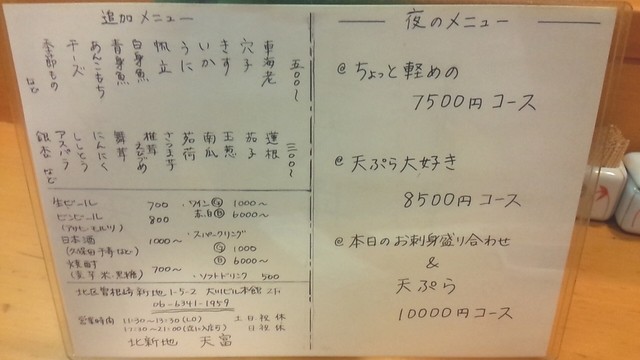 追加メニュー
五〇〇〜
車海老
穴子
きす
いか
うに
帆立
白身魚
青身魚
あんこもち
チーズ
季節もの
など
三〇〇〜
蓮根
茄子
玉葱
南瓜
茗荷
さつま芋
椎茸
舞茸
にんにく
ししとう
アスパラ
銀杏 など
生ビール 700
ビンビール 800
(アサヒ・モルツ)
日本酒 1000〜
(久保田千寿など)
焼酎 700〜
(麦・芋・米・黒糖)
・ワイン Ⓖ 1000〜
赤・白 Ⓑ 6000〜
・スパークリング
Ⓖ 1000
Ⓑ 6000〜
・ソフトドリンク 500
北区曽根崎新地1-5-2 大川ビル本館 2F
06-6341-1959
営業時間 11:30〜13:30(LO) 土日祝休
17:30〜21:00 日祝休
北新地 天富
夜のメニュー
@ ちょっと軽めの
7500円コース
@ 天ぷら大好き
8500円コース
@ 本日のお刺身盛り合わせ
&
天ぷら
10000円コース